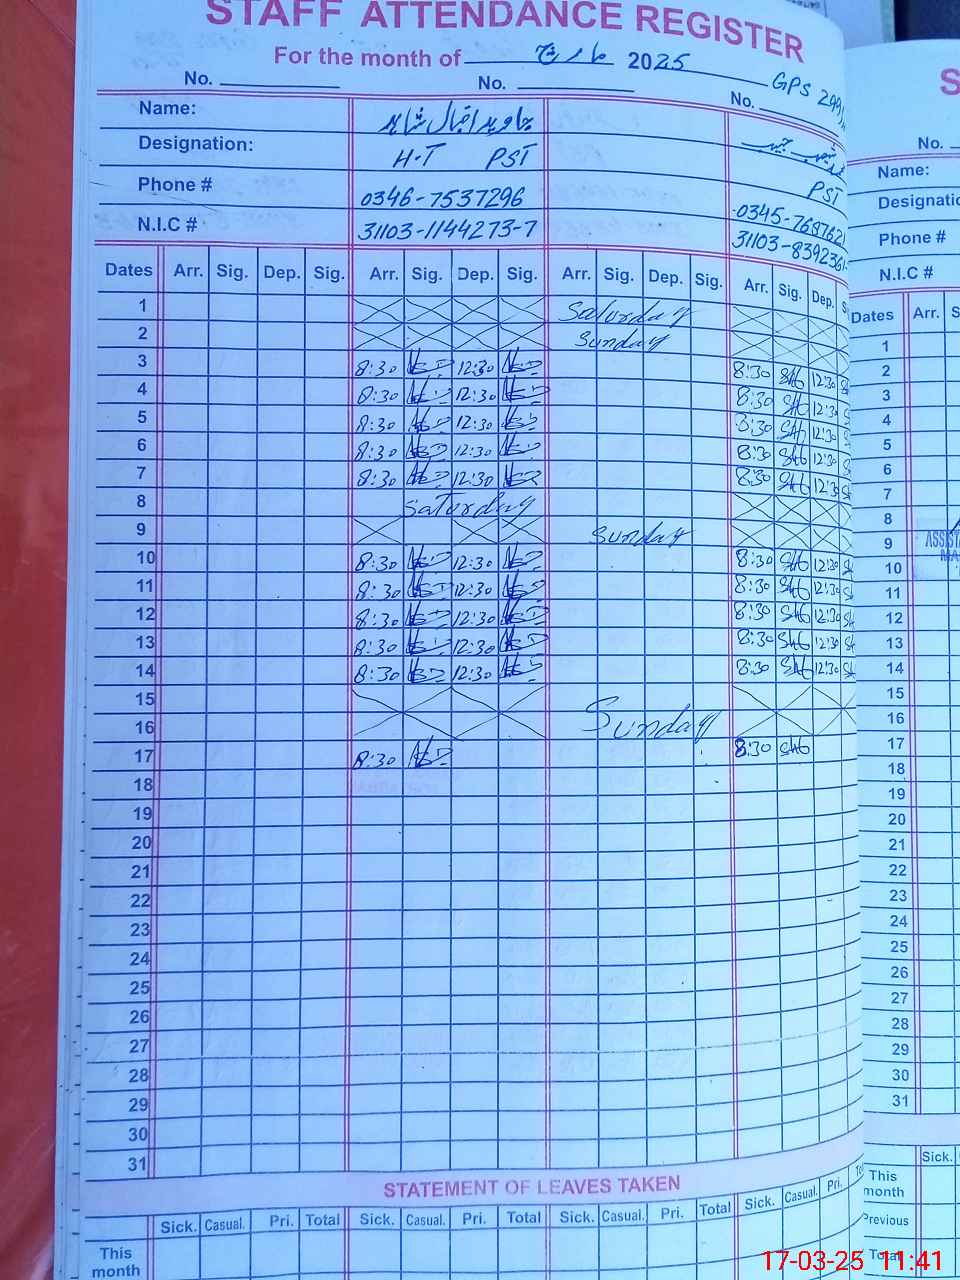 STAFF ATTENDANCE REGISTER
For the month of مارچ 2025
No. No. No. GPS
Name: جاوید اقبال شاہد
Designation: H-T PST PST
Phone # 0346-7537296 0345-768762
N.I.C # 31103-1144273-7 31103-8392361-
Dates Arr. Sig. Dep. Sig. Arr. Sig. Dep. Sig. Arr. Sig. Dep. Sig. Arr. Sig. Dep. S
1 Saturday
2 Sunday
3 8:30 12:30 8:30 12:30
4 8:30 12:30 8:30 12:30
5 8:30 12:30 8:30 12:30
6 8:30 12:30 8:30 12:30
7 8:30 12:30 8:30 12:30
8 Saturday
9 Sunday
10 8:30 12:30 8:30 12:30
11 8:30 12:30 8:30 12:30
12 8:30 12:30 8:30 12:30
13 8:30 12:30 8:30 12:30
14 8:30 12:30 8:30 12:30
15
16 Sunday
17 8:30 8:30
18
19
20
21
22
23
24
25
26
27
28
29
30
31
STATEMENT OF LEAVES TAKEN
Sick. Casual. Pri. Total Sick. Casual. Pri. Total Sick. Casual. Pri. Total Sick. Casual. Pri.
This
month
S
No.
Name:
Designatio
Phone #
N.I.C #
Dates Arr. S
1
2
3
4
5
6
7
8
9 ASSISTA
10
11
12
13
14
15
16
17
18
19
20
21
22
23
24
25
26
27
28
29
30
31
Sick.
This
month
Previous
Total
17-03-25 11:41